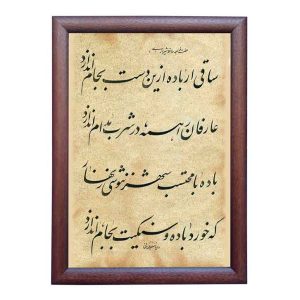 ساقی ار باده ازین دست بجام اندازد
عارفان را همه در شرب مدام اندازد
باده با محتسب شهر ننوشی زنهار
که خورد باده و سنگیت بجام اندازد